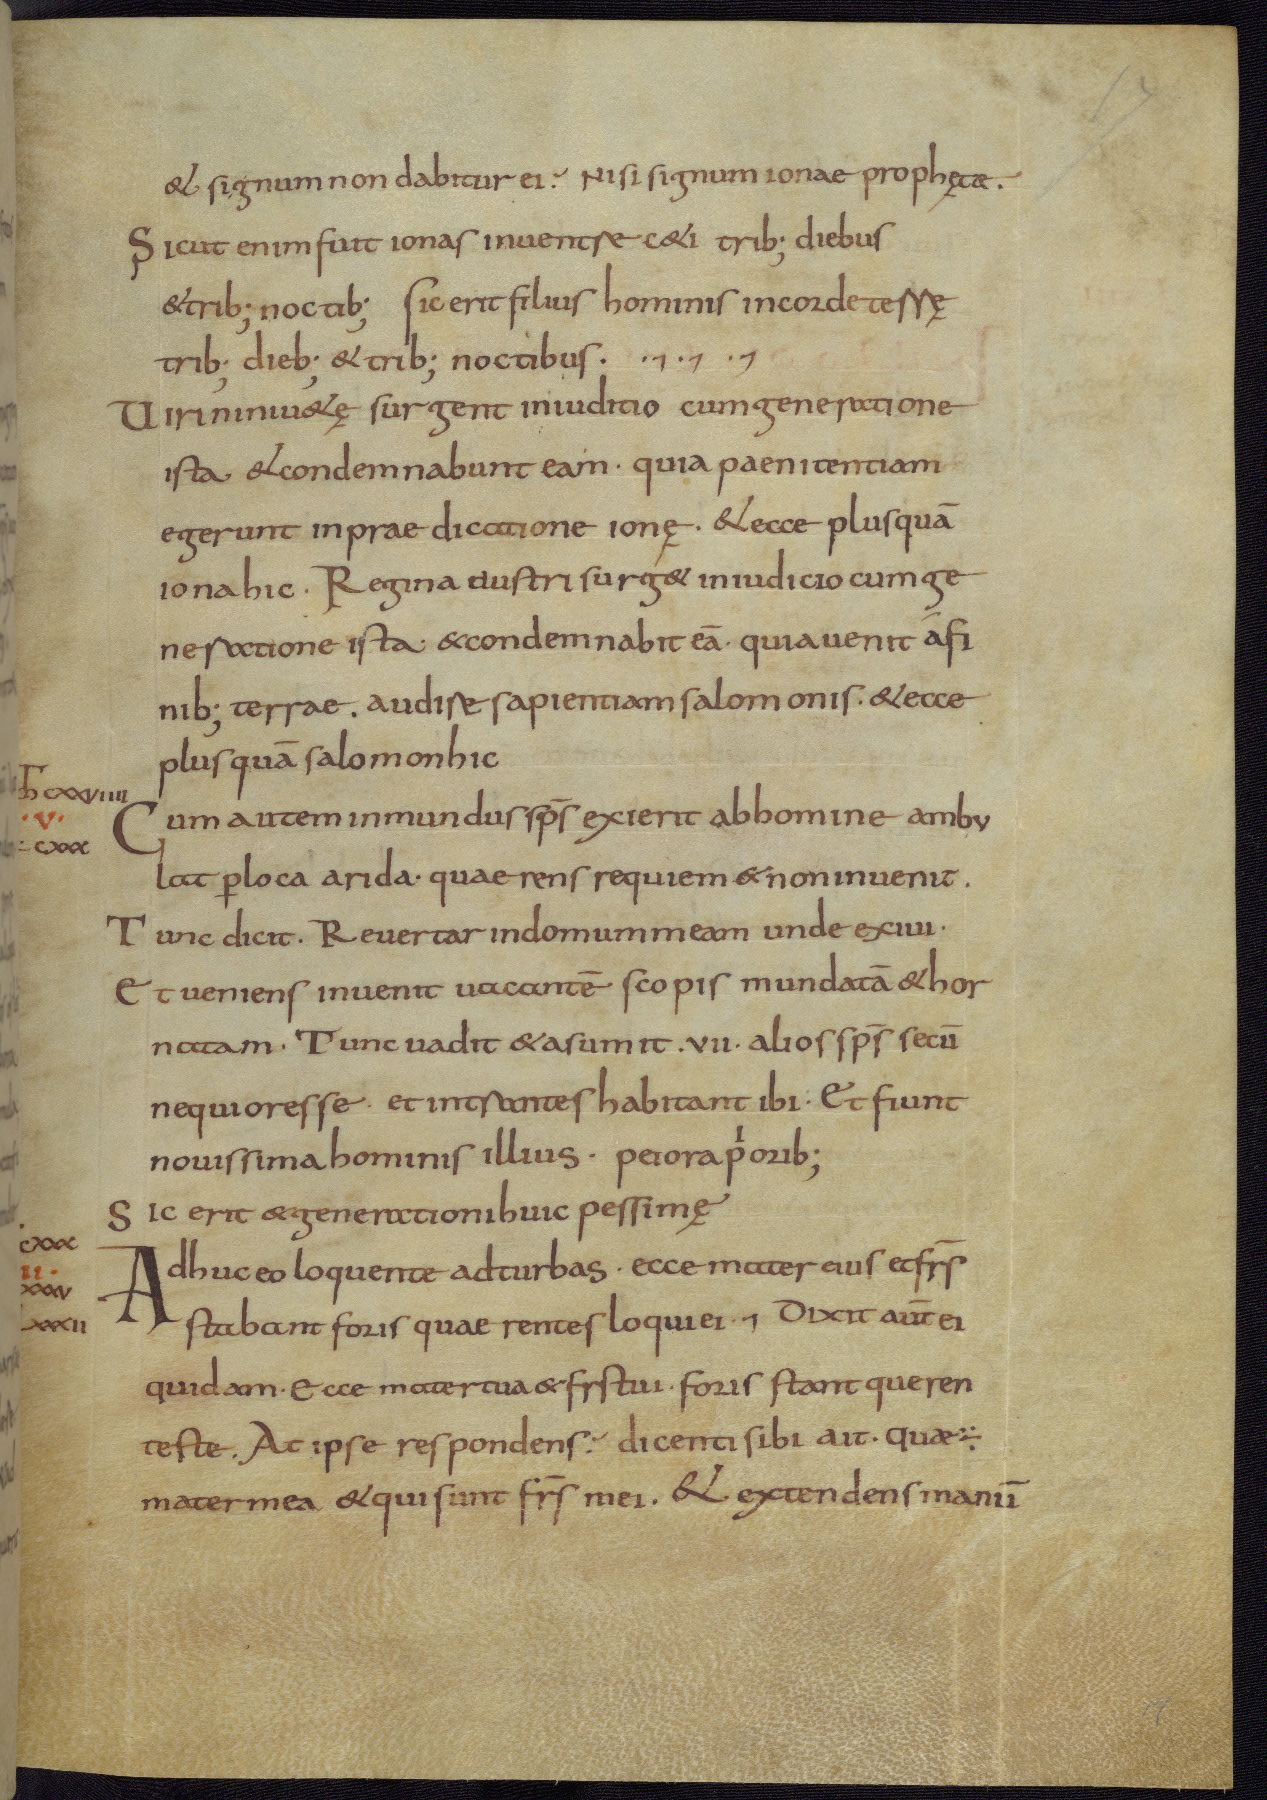 17
& signum non dabitur ei. Nisi signum ionae prophętae.
Sicut enim fuit ionas inventre c&i trib; diebus
& trib; noctib; sic erit filius hominis incorde terrę
trib; dieb; & trib; noctibus.
Uiri niniu&ę surgent iniuditio cumgeneratione
ista &condemnabunt eam. quia paenitentiam
egerunt inpraedicatione ionę. & ecce plusquā
iona hic. Regina austri surg& iniudicio cumge
neratione ista. &condemnabit eā. quiauenit afi
nib; terrae. audire sapientiam salomonis. & ecce
plusquā salomonhic
cxxviiii
Cum autem inmundus sp̄s exierit abhomine ambu
·v·
cxxx
lat ꝑloca arida. quaerens requiem & non inuenit.
Tunc dicit. Reuertar indomummeam unde exiui.
Et ueniens inuenit uacantē scopis mundatā & hor
natam. Tunc uadit & asumit .vii. alios sp̄s secū
nequioresse. et intrantes habitant ibi. Et fiunt
nouissima hominis illius. peiora pͥorib;
Sic erit & generationi huic pessimę
cxxx
Adhuc eo loquente adturbas. ecce mater eius et fr̄s
ii·
xxxv
stabant foris quaerentes loqui ei. Dixit aūt ei
xxxii
quidam. Ecce mater tua & fr̄s tui. foris stant queren
teste. At ipse respondens. dicenti sibi ait. quae ÷
mater mea & qui sunt fr̄s mei. & extendens manū